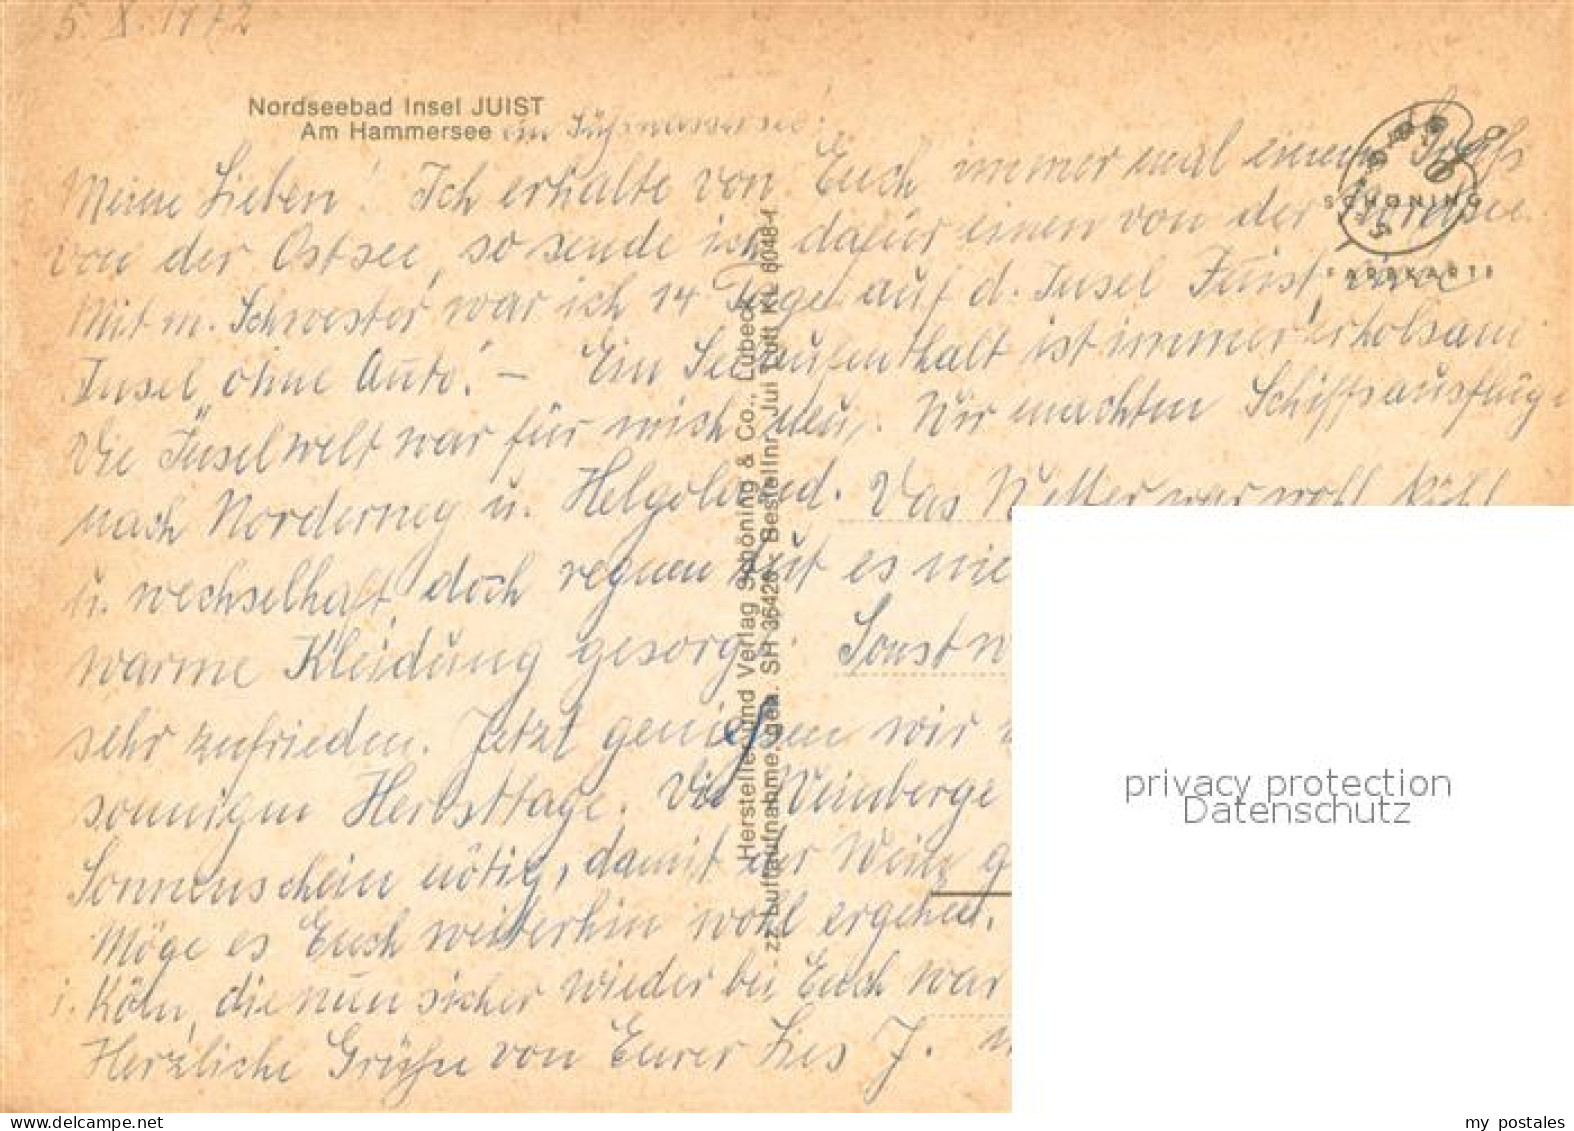 5. X. 1972
Nordseebad Insel JUIST
Am Hammersee ein Süßwassersee!
Meine Lieben! Ich erhalte von Euch immer mal einen Gruß
von der Ostsee, so sende ich dafür einen von der Nordsee.
Mit m. Schwester war ich 14 Tage auf d. Insel Juist, eine
Insel ohne Auto! – Ein Seeaufenthalt ist immer erholsam
Die Inselwelt war für mich neu. Wir machten Schiffsausflüge
nach Norderney u. Helgoland. Das Wetter war wohl kühl
u. wechselhaft, doch regnen tut es nie
warme Kleidung gesorgt. Sonst w
sehr zufrieden. Jetzt genießen wir
sonnigen Herbsttage. Die Weinberge
Sonnenschein nötig, damit der Wein g
Möge es Euch weiterhin wohl ergehen.
i. Köln, die nun sicher wieder bei Euch war
Herzliche Grüße von Eurer Lies J.
SCHÖNING
FARBKARTE
Hersteller und Verlag Schöning & Co., Lübeck
zz Luftaufnahme. gen. SH 36426 Bestellnr. Jui Luft KL 6048-1
privacy protection
Datenschutz
my postales